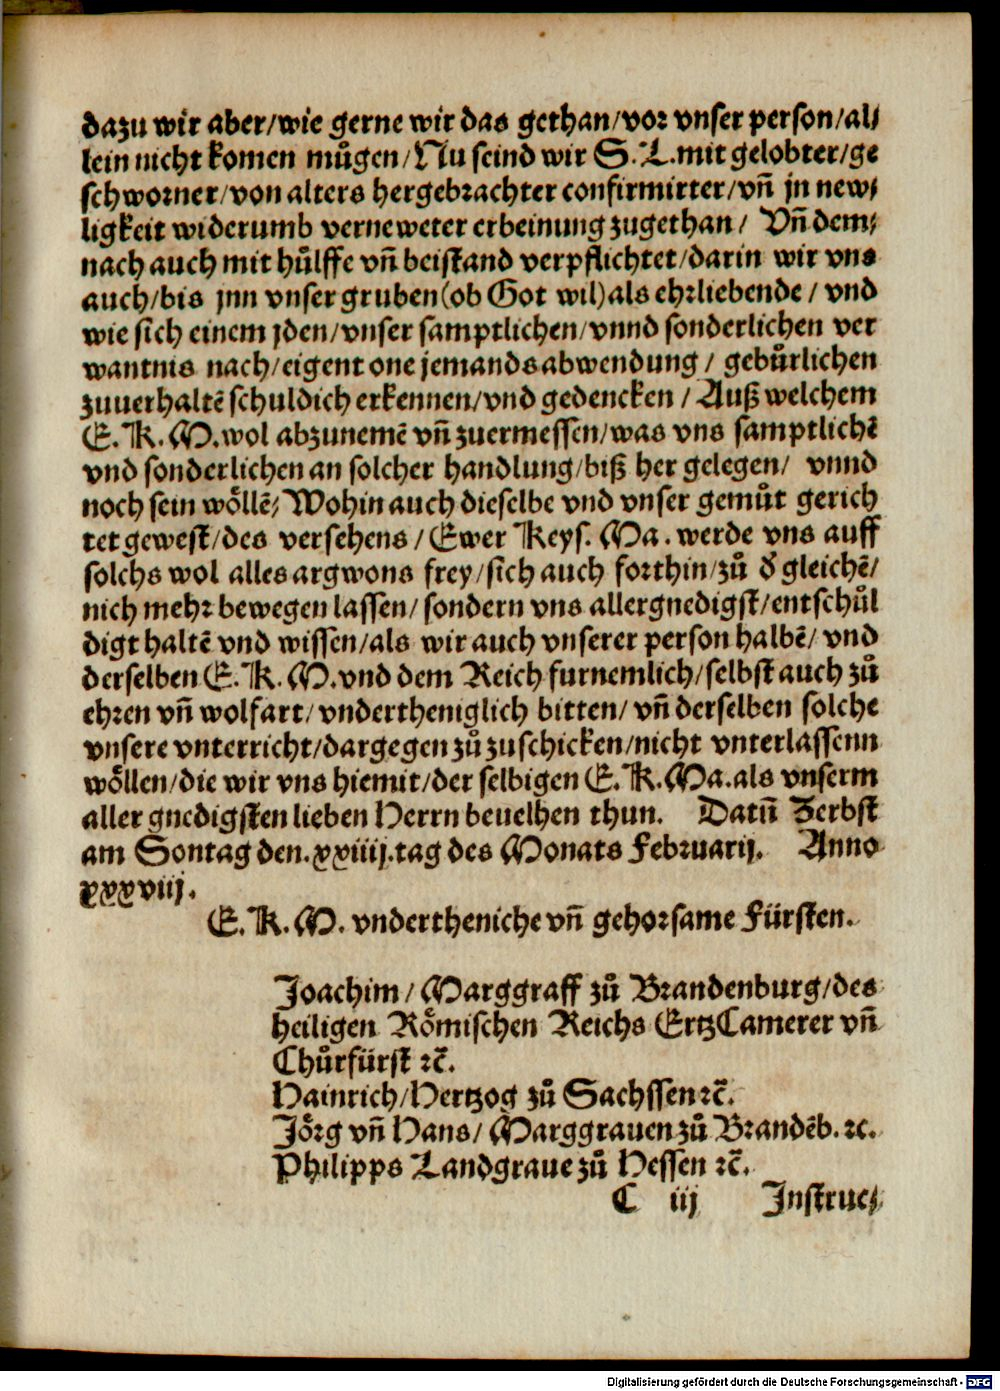 dazu wir aber/wie gerne wir das gethan/vor vnser person/al⸗
lein nicht komen mügen/Nu seind wir S. L. mit gelobter/ge
schworner/von alters hergebrachter confirmirter/vñ jn new⸗
ligkeit widerumb verneweter erbeinung zugethan/ Vñ dem⸗
nach auch mit hůlffe vñ beistand verpflichtet/darin wir vns
auch/bis jnn vnser gruben(ob Got wil)als ehrliebende/ vnd
wie sich einem jden/vnser samptlichen/vnnd sonderlichen ver
wantnis nach/eigent one jemands abwendung/ gebůrlichen
zuuerhaltē schuldich erkennen/vnd gedencken/ Auß welchem
E. K. M. wol abzunemē vñ zuermessen/was vns samptlichē
vnd sonderlichen an solcher handlung/biß her gelegen/ vnnd
noch sein wöllē/ Wohin auch dieselbe vnd vnser gemůt gerich
tet gewest/des versehens/ Ewer Keys. Ma. werde vns auff
solchs wol alles argwons frey/sich auch forthin/zů d̛ gleichē/
nich mehr bewegen lassen/ sondern vns allergnedigst/entschůl
digt haltē vnd wissen/als wir auch vnserer person halbē/ vnd
derselben E. K. M. vnd dem Reich furnemlich/selbst auch zů
ehren vñ wolfart/ vndertheniglich bitten/ vñ derselben solche
vnsere vnterricht/dargegen zů zuschicken/nicht vnterlassenn
wöllen/die wir vns hiemit/der selbigen E. K. Ma. als vnserm
aller gnedigsten lieben Herrn beuelhen thun. Datū Zerbst
am Sontag den. xxiiij. tag des Monats Februarij. Anno
xxxviij.
E. K. M. vndertheniche vñ gehorsame Fürsten.
Joachim/ Marggraff zů Brandenburg/des
heiligen Römischen Reichs ErtzCamerer vñ
Chůrfürst ꝛc̄.
Hainrich/Hertzog zů Sachssen ꝛc̄.
Jörg vñ Hans/ Marggrauen zů Brandēb. ꝛc.
Philipps Landgraue zů Hessen ꝛc̄.
C iij Instruc⸗
Digitalisierung gefördert durch die Deutsche Forschungsgemeinschaft - DFG